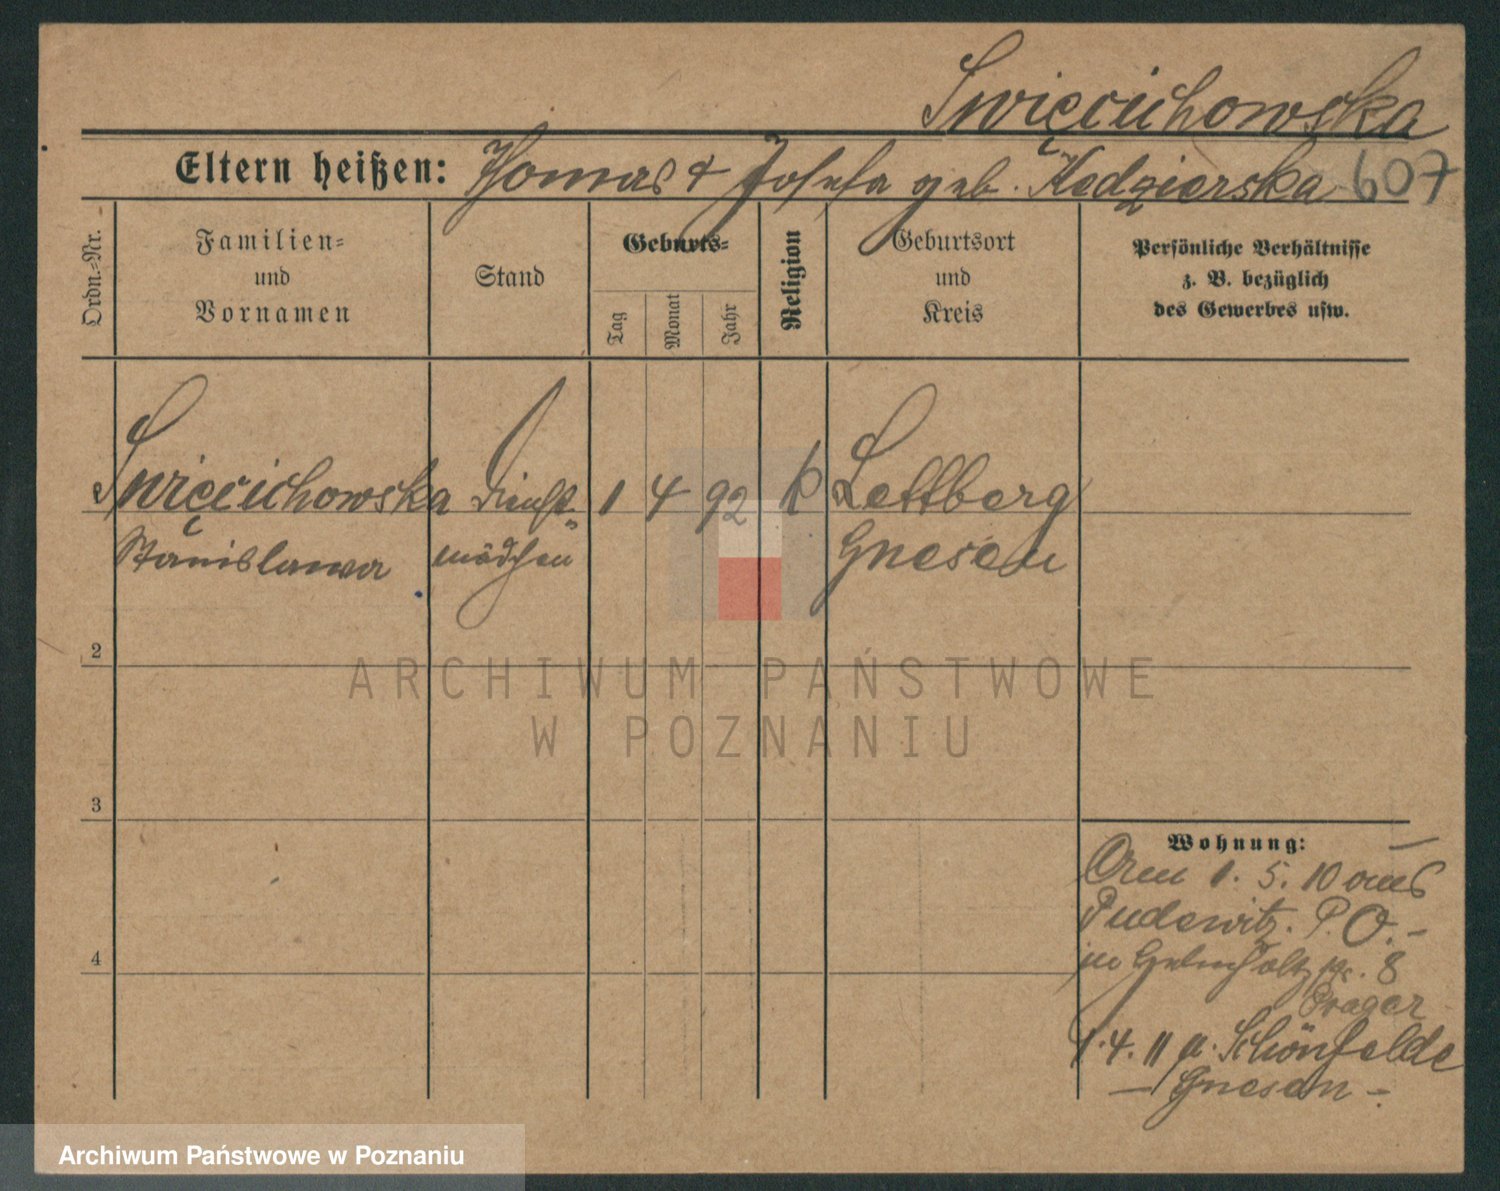 Święcichowska
Eltern heißen: Thomas & Josefa geb. Kedzierska 607
Ordn.=Nr.
Familien=
und
Vornamen
Stand
Geburts=
Tag
Monat
Jahr
Religion
Geburtsort
und
Kreis
Persönliche Verhältnisse
z. B. bezüglich
des Gewerbes usw.
Święcichowska Dienst= 1 4 92 k Lettberg
Stanislawa mädchen Gnesen
2
3
4
Wohnung:
Am 1. 5. 10 aus
Pudewitz. P. O. -
8
Prager
1. 4. 11 a. Schönfelde
- Gnesen -
ARCHIWUM PAŃSTWOWE
W POZNANIU
Archiwum Państwowe w Poznaniu